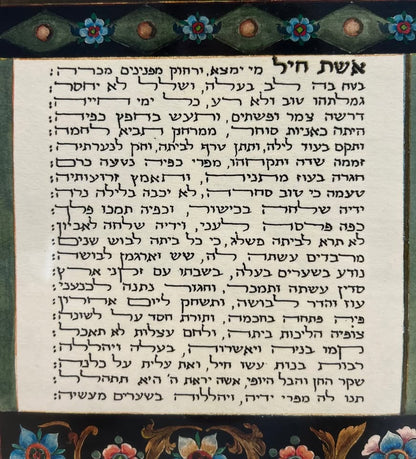 אשת חיל מי ימצא, ורחוק מפנינים מכרה:
בטח בה לב בעלה, ושלל לא יחסר:
גמלתהו טוב ולא רע, כל ימי חייה:
דרשה צמר ופשתים, ותעש בחפץ כפיה:
היתה כאניות סוחר, ממרחק תביא לחמה:
ותקם בעוד לילה, ותתן טרף לביתה, וחק לנערתיה:
זממה שדה ותקחהו, מפרי כפיה נטעה כרם:
חגרה בעוז מתניה, ותאמץ זרועותיה:
טעמה כי טוב סחרה, לא יכבה בלילה נרה:
ידיה שלחה בכישור, וכפיה תמכו פלך:
כפה פרסה לעני, וידיה שלחה לאביון:
לא תרא לביתה משלג, כי כל ביתה לבוש שנים:
מרבדים עשתה לה, שש וארגמן לבושה:
נודע בשערים בעלה, בשבתו עם זקני ארץ:
סדין עשתה ותמכר, וחגור נתנה לכנעני:
עוז והדר לבושה, ותשחק ליום אחרון:
פיה פתחה בחכמה, ותורת חסד על לשונה:
צופיה הליכות ביתה, ולחם עצלות לא תאכל:
קמו בניה ויאשרוה, בעלה ויהללה:
רבות בנות עשו חיל, ואת עלית על כלנה:
שקר החן והבל היופי, אשה יראת ה' היא תתהלל:
תנו לה מפרי ידיה, ויהללוה בשערים מעשיה: